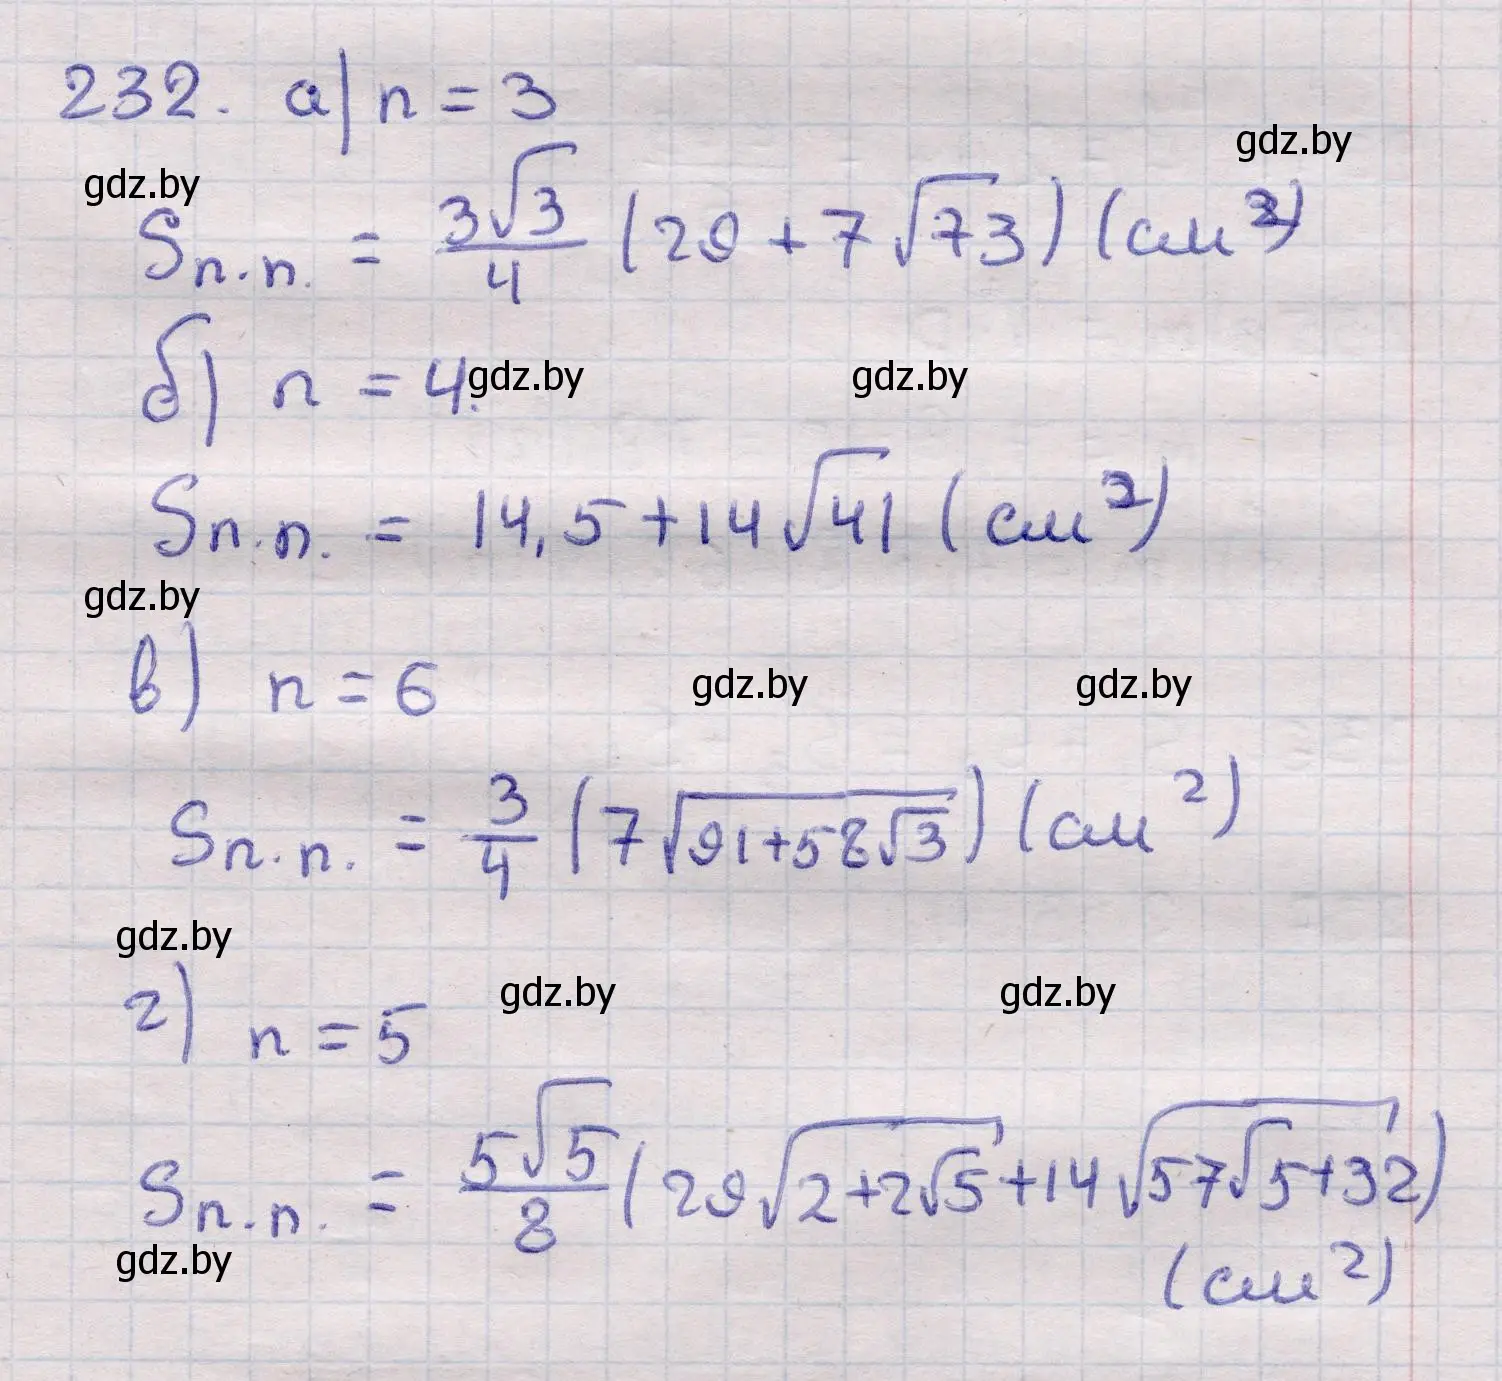 232. а) n = 3
gdz.by
gdz.by
Sп.п. = 3√3/4 (29 + 7√73) (см²)
б) n = 4.
gdz.by
gdz.by
Sп.п. = 14,5 + 14√41 (см²)
gdz.by
в) n = 6
gdz.by
gdz.by
Sп.п. = 3/4 (7√(91+58√3)) (см²)
gdz.by
г) n = 5
gdz.by
gdz.by
Sп.п. = 5√5/8 (29√(2+2√5) + 14√(57√5+32))
(см²)
gdz.by